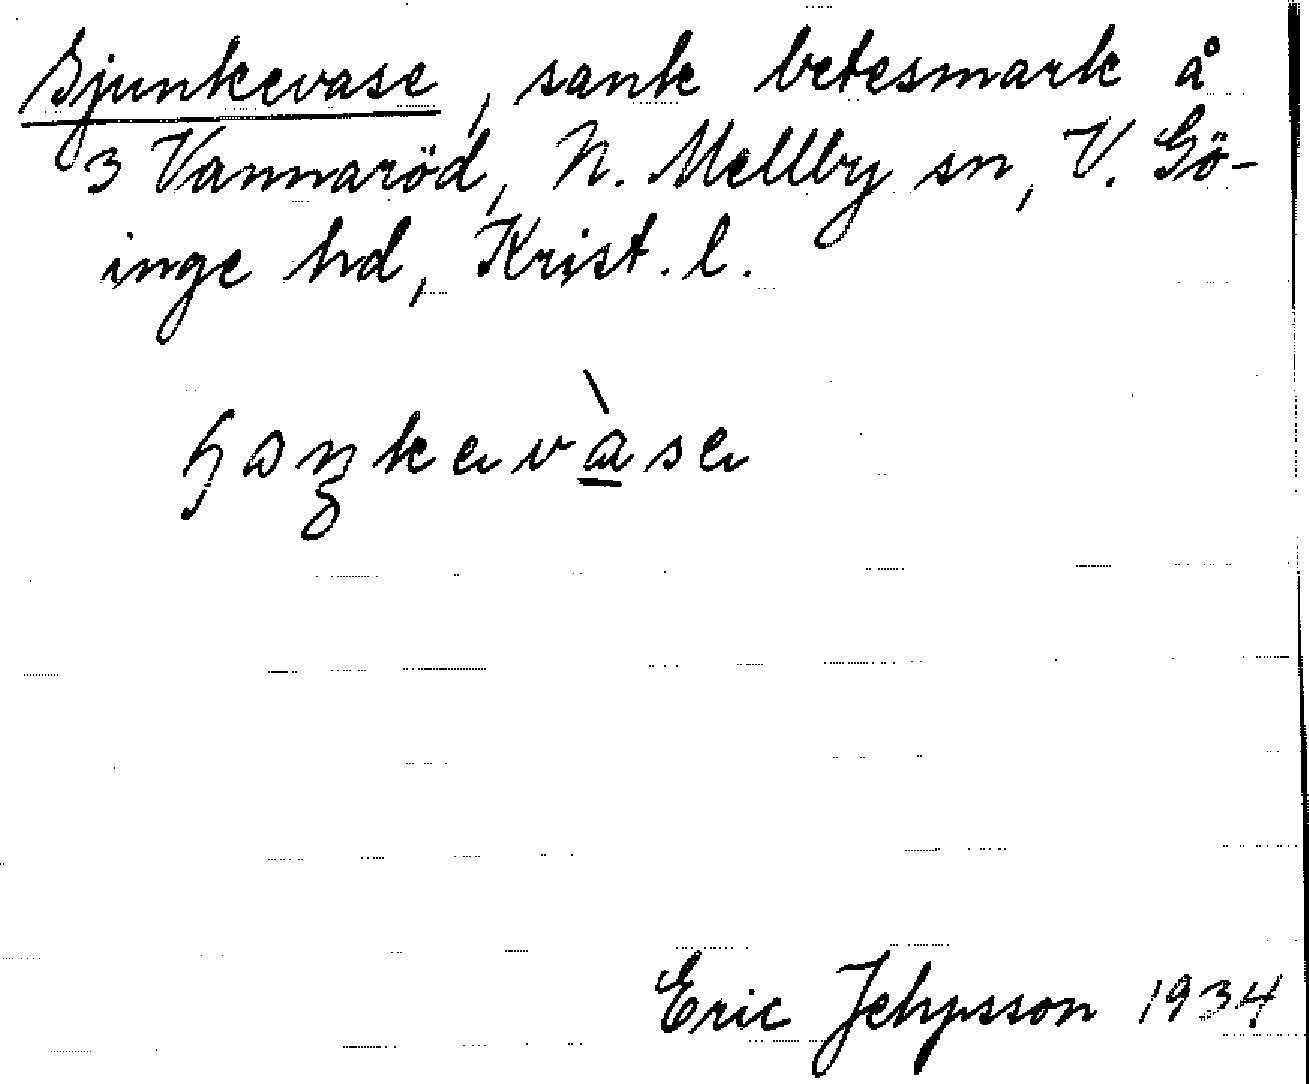 Sjunkevase, sank betesmark å
3 Vannaröd, N. Mellby sn, V. Gö-
inge hd, Krist. l.
Eric Jehpsson 1934